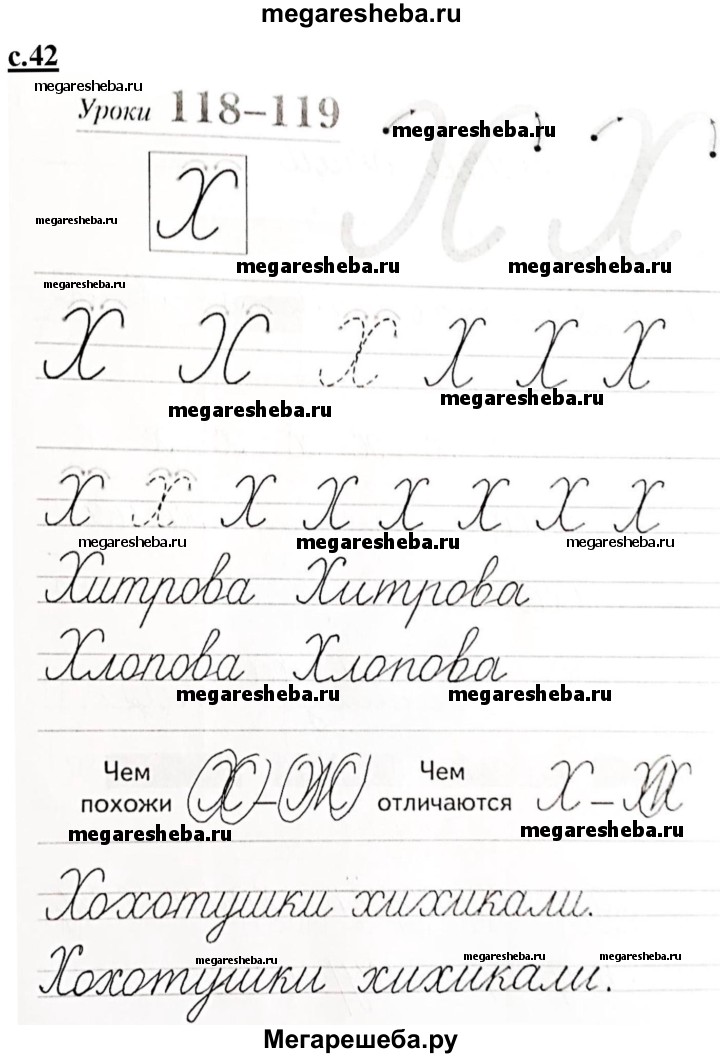 megaresheba.ru
с.42
megaresheba.ru
Уроки 118–119
megaresheba.ru
Х Х
Х
megaresheba.ru
megaresheba.ru megaresheba.ru
megaresheba.ru
Х Х Х Х Х Х
megaresheba.ru megaresheba.ru
Х Х Х Х Х Х Х Х
megaresheba.ru megaresheba.ru megaresheba.ru
Хитрова Хитрова
Хлопова Хлопова
megaresheba.ru megaresheba.ru
Чем похожи Х – Ж Чем отличаются Х – Ж
megaresheba.ru megaresheba.ru
Хохотушки хихикали.
megaresheba.ru megaresheba.ru megaresheba.ru
Хохотушки хихикали.
Мегарешеба.ру